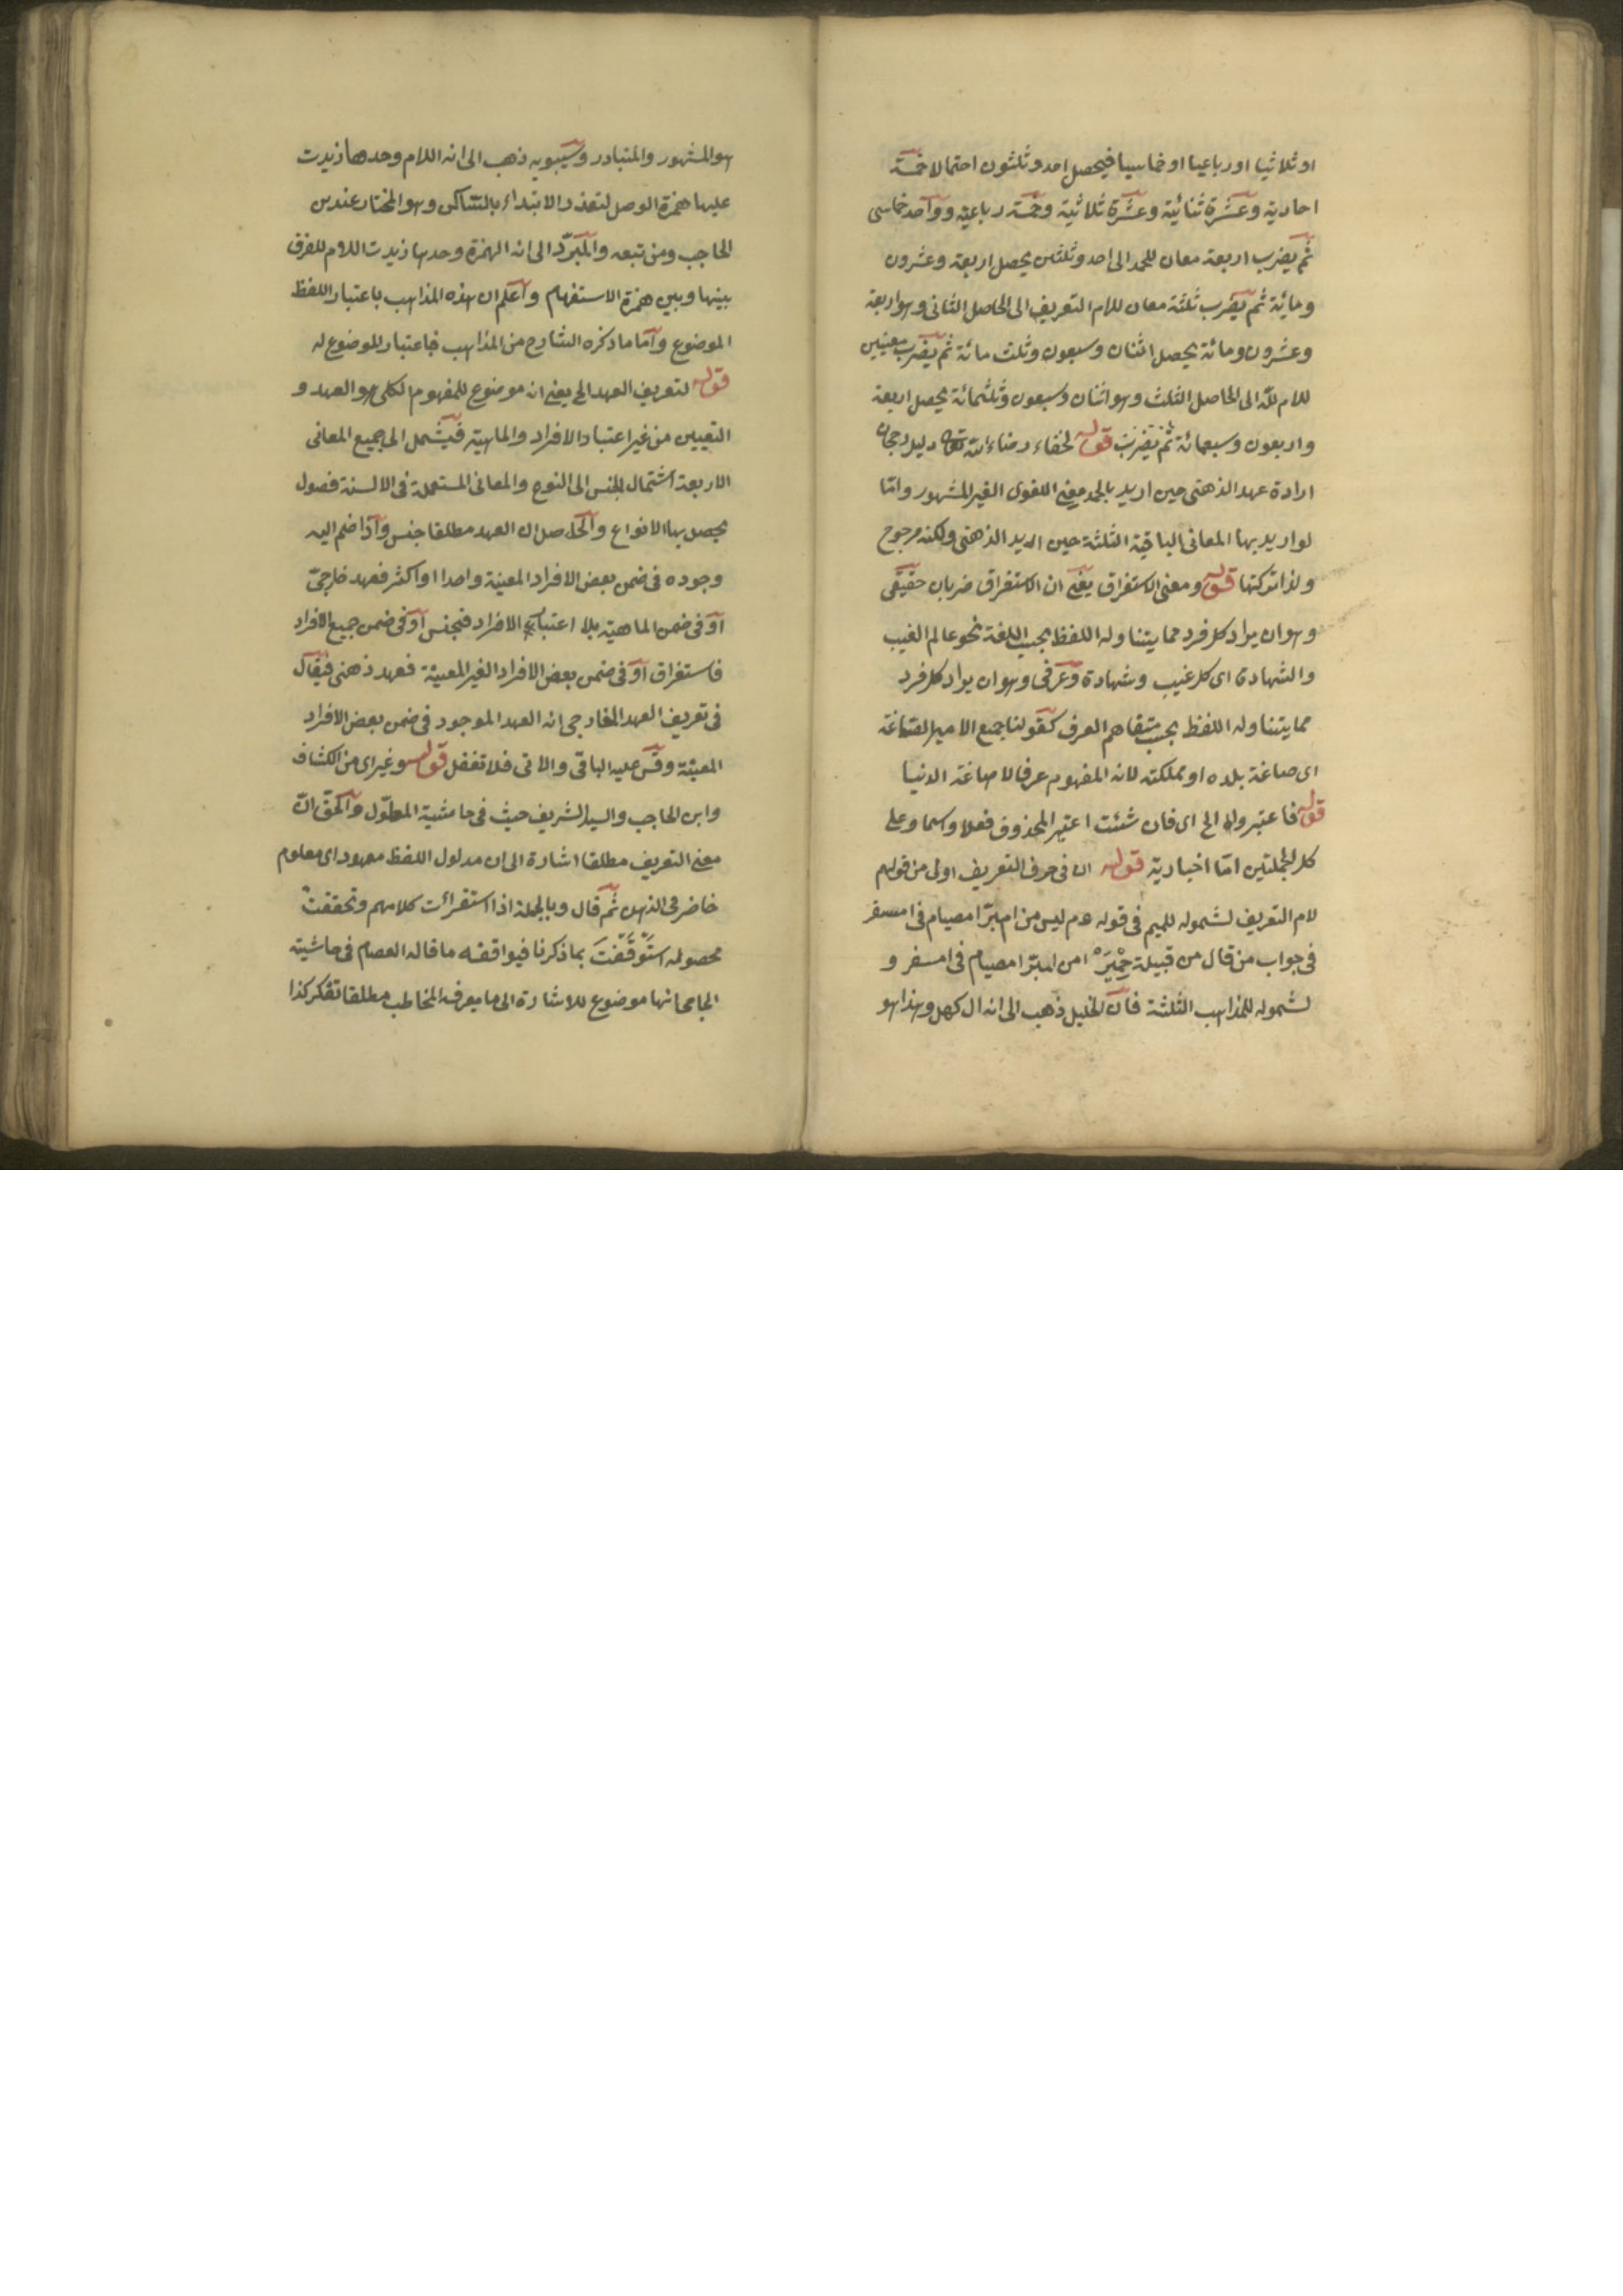 او ثلاثيا او رباعيا او خماسيا فيحصل احد وثلثون احتمالا خمسة
احادية وعشرة ثنائية وعشرة ثلاثية وخمسة رباعية وواحد خماسى
ثم يضرب اربعة معان للحمد الى احد وثلثين يحصل اربعة وعشرون
ومائة ثم يضرب ثلثة معان للام التعريف الى الحاصل الثانى وهو اربعة
وعشرون ومائة يحصل اثنان وسبعون وثلث مائة ثم يضرب معنيين
للام لله الى الحاصل الثلث وهو اثنان وسبعون وثلثمائة يحصل اربعة
واربعون وسبعمائة ثم يضرب قوله لخفاء رضاء الله تعالى دليل رجحان
ارادة عهد الذهنى حين اريد بالحمد معنى اللغوى الغير المشهور واما
لو اريد بها المعانى الباقية الثلثة حين اريد الذهنى ولكنه مرجوح
ولذا تركتها قوله ومعنى الاستغراق يعنى ان الاستغراق ضربان حقيقى
وهو ان يراد كل فرد مما يتناوله اللفظ بحسب اللغة نحو عالم الغيب
والشهادة اى كل غيب وشهادة وعرفى وهو ان يراد كل فرد
مما يتناوله اللفظ بحسب متفاهم العرف كقولنا جمع الامير الصاغة
اى صاغة بلده او مملكته لانه المفهوم عرفا لا صاغة الدنيا
قوله فاعتبروله الخ اى فان شئت اعتبر المحذوف فعلا واسما وعلى
كل الجملتين اما اخبارية قوله ان فى حرف التعريف اولى من قولهم
لام التعريف لشموله للميم فى قوله عم ليس من امبر امصيام فى امسفر
فى جواب من قال من قبيلة حمير امن امبر امصيام فى امسفر و
لشموله للمذاهب الثلثة فان الخليل ذهب الى انه ال كهل وهذا هو
هو المشهور والمتبادر وسيبويه ذهب الى انه اللام وحدها زيدت
عليها همزة الوصل لتعذر الابتداء بالساكن وهو المختار عند بن
الحاجب ومن تبعه والمبرد الى انه الهمزة وحدها زيدت اللام للفرق
بينها وبين همزة الاستفهام واعلم ان هذه المذاهب باعتبار اللفظ
الموضوع واما ما ذكره الشارح من المذاهب فباعتبار الموضوع له
قوله لتعريف العهد الخ يعنى انه موضوع للمفهوم الكلى هو العهد و
التعيين من غير اعتبار الافراد والماهية فيشمل الى جميع المعانى
الاربعة اشتمال الجنس الى النوع والمعانى المستعملة فى الالسنة فصول
يحصل بها الانواع والحاصل ان العهد مطلقا جنس واذا ضم اليه
وجوده فى ضمن بعض الافراد المعينة واحدا او اكثر فعهد خارجى
او فى ضمن الماهية بلا اعتبار الافراد فجنس او فى ضمن جميع الافراد
فاستغراق او فى ضمن بعض الافراد الغير المعينة فعهد ذهنى فيقال
فى تعريف العهد الخارجى انه العهد الموجود فى ضمن بعض الافراد
المعينة وقس عليه الباقى والاتى فلا تغفل قوله وغيراى من الكشاف
وابن الحاجب والسيد الشريف حيث فى حاشية المطول والحق ان
معنى التعريف مطلقا اشارة الى ان مدلول اللفظ معهود اى معلوم
حاضر فى الذهن ثم قال وبالجملة اذا استقرأت كلامهم وتحققت
محصوله استوقفت بما ذكرنا فيوافقه ما قاله العصام فى حاشية
الجامى انها موضوع للاشارة الى ما يعرفه المخاطب مطلقا تفكر كذا